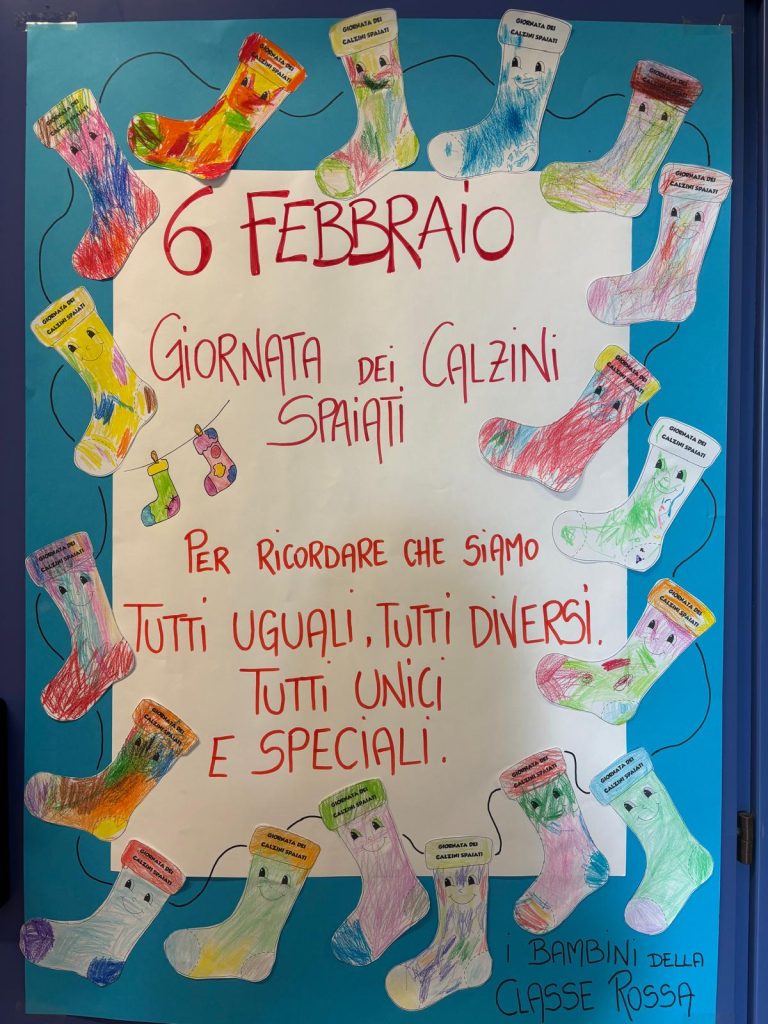 GIORNATA DEI
CALZINI SPAIATI
GIORNATA DEI
CALZINI SPAIATI
GIORNATA DEI
CALZINI SPAIATI
GIORNATA DEI
CALZINI SPAIATI
GIORNATA DEI
CALZINI SPAIATI
GIORNATA DEI
CALZINI SPAIATI
6 FEBBRAIO
GIORNATA DEI CALZINI
SPAIATI
GIORNATA DEI
CALZINI SPAIATI
GIORNATA DEI
CALZINI SPAIATI
GIORNATA DEI
CALZINI SPAIATI
PER RICORDARE CHE SIAMO
TUTTI UGUALI, TUTTI DIVERSI.
TUTTI UNICI
E SPECIALI.
GIORNATA DEI
CALZINI SPAIATI
GIORNATA DEI
CALZINI SPAIATI
GIORNATA DEI
CALZINI SPAIATI
GIORNATA DEI
CALZINI SPAIATI
GIORNATA DEI
CALZINI SPAIATI
GIORNATA DEI
CALZINI SPAIATI
GIORNATA DEI
CALZINI SPAIATI
GIORNATA DEI
CALZINI SPAIATI
GIORNATA DEI
CALZINI SPAIATI
I BAMBINI DELLA
CLASSE ROSSA